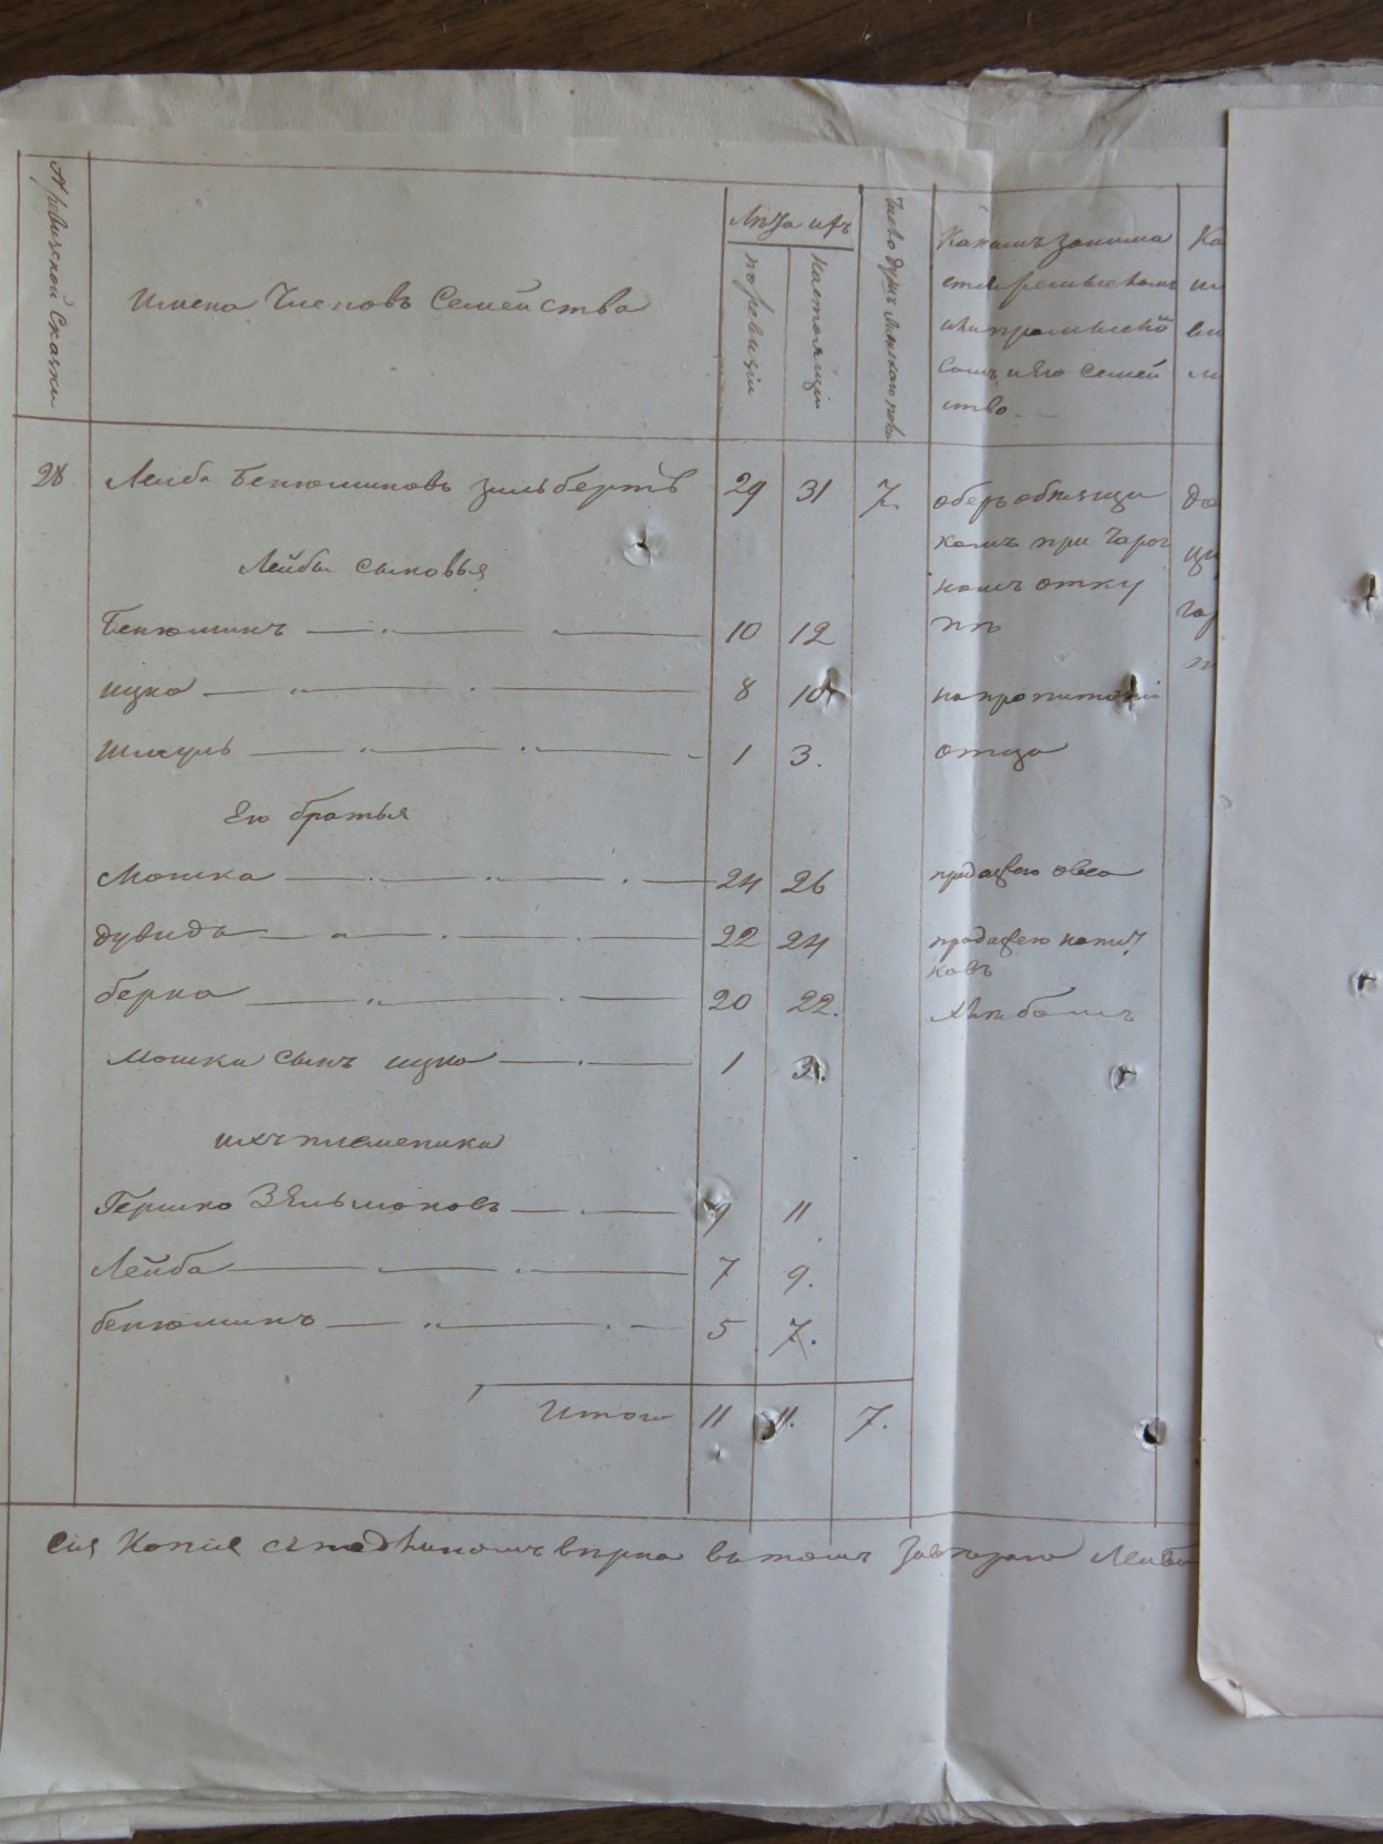 № ревизской сказки
Имена Членовъ Семейства
Лѣта ихъ
по ревизіи
настоящіи
Число душъ мужского пола
Какимъ занима
ется ремысломъ
или промысломъ
самъ и его семей
ство
Ка
28 Лейба Бенюминовъ Зильбертъ 29 31 7. оберъ обьящи
Лейбы сыновья
комъ при Чароч
номъ отку
пѣ
Бенюминъ 10 12
ицко 8 10 на пропитаніи
Шмуль 1 3. отца
Его братья
Мошка 24 26 продажею овса
дувидъ 22 24 продажею
ковъ
берко 20 22. хлѣбомъ
Мошки сынъ ицко 1 3.
ихъ племеники
Гершко Зельмоновъ 9 11
Лейба 7 9.
бенюминъ 5 7.
Итого 11 11. 7.
Сія Копія съ подлинномъ вѣрна въ томъ Лейба